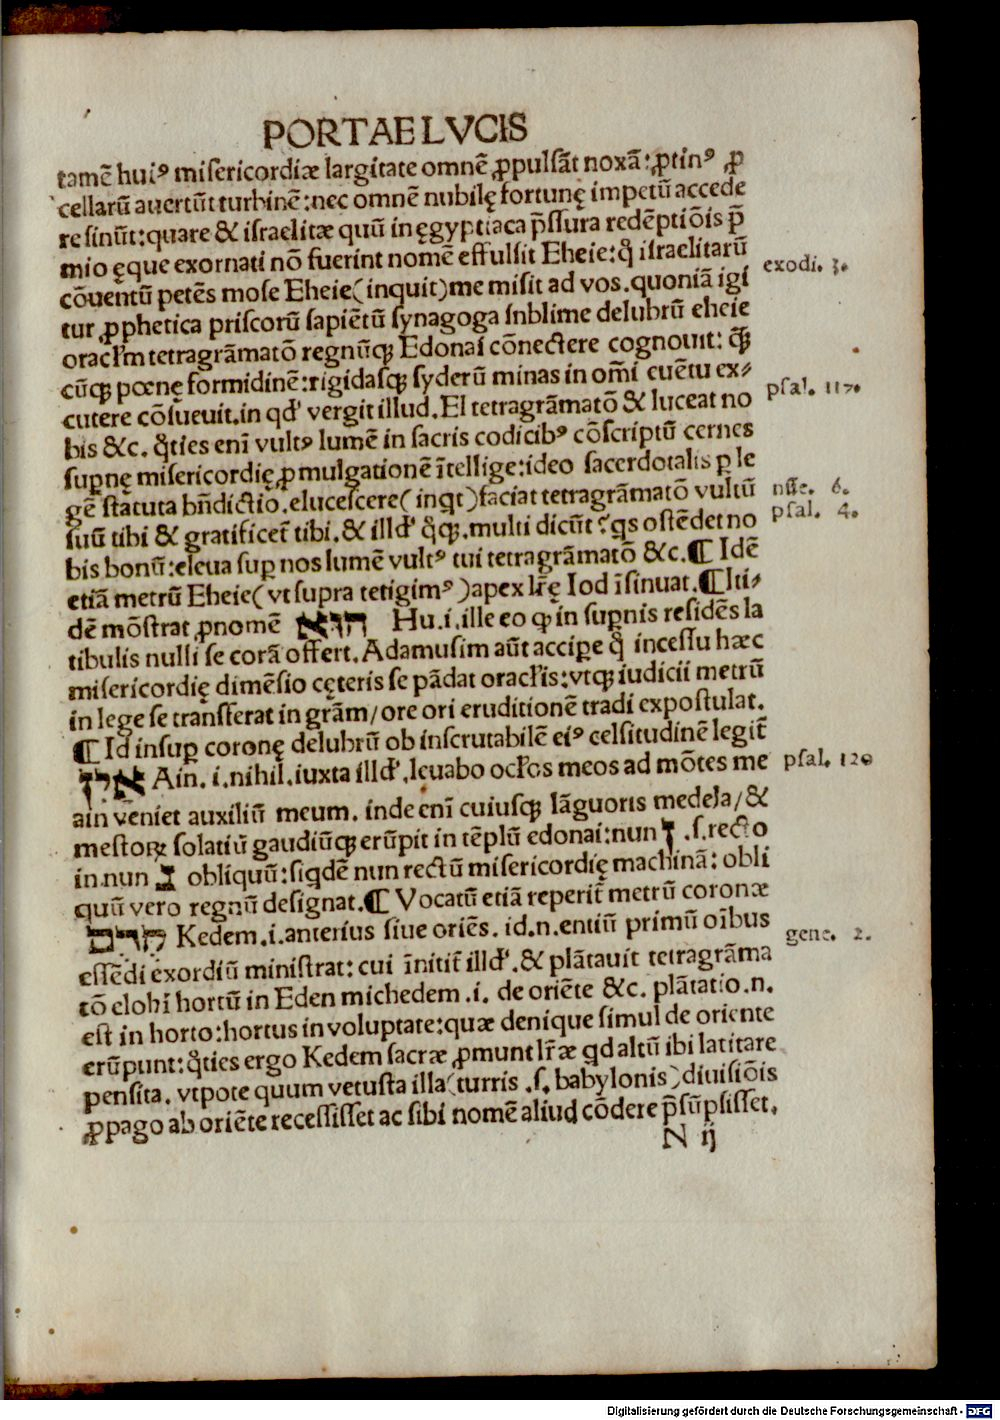 PORTAE LVCIS
tamē huiꝰ misericordiæ largitate omnē ꝓpulsāt noxā: ꝓtinꝰ ꝓ
cellarū auertūt turbinē: nec omnē nubilę fortunę impetū accede
re sinūt: quare & israelitæ quū in ęgyptiaca p̄ssura redēptiōis p̄
mio ęque exornati nō fuerint nomē effulsit Eheie: q̄ israelitarū
cōuentū petēs mose Eheie (inquit) me misit ad vos. quoniā igi
exodi. 3.
tur ꝓphetica priscorū sapiētū synagoga snblime delubrū eheie
oracłm tetragrāmatō regnūq; Edonai cōnectere cognouit: q̄
cūq; pœnę formidinē: rigidasq; syderū minas in om̄i euētu ex⸗
cutere cōsueuit. in qđ vergit illud. El tetragrāmatō & luceat no
psal. 117.
bis &c. q̄ties eni vultꝰ lumē in sacris codicibꝰ cōscriptū cernes
suꝑnę misericordię ꝓmulgationē ītellige: ideo sacerdotalis ꝑ le
gē statuta bn̄dictio. elucescere (inqt) faciat tetragrāmatō vultū
nſſe. 6.
suū tibi & gratificet̄ tibi. & illđ q̄q;. multi dicūt ?qs ostēdet no
psal. 4.
bis bonū: eleua suꝑ nos lumē vultꝰ tui tetragrāmatō &c. ¶ Idē
etiā metrū Eheie (vt supra tetigimꝰ) apex lr̄ę Iod īsinuat. ¶ Iti⸗
dē mōstrat ꝓnomē הוא Hu .i. ille eo ꝙ in suꝑnis residēs la
tibulis nulli se corā offert. Adamusim aūt accipe q̄ incessu hæc
misericordię dimēsio cęteris se pādat oracłis: vtq; iudicii metrū
in lege se transferat in grām / ore ori eruditionē tradi expostulat.
¶ Id insuꝑ coronę delubrū ob inscrutabilē eiꝰ celsitudinē legit̄
אין Ain .i. nihil. iuxta illđ. leuabo ocłos meos ad mōtes me
psal. 120
ain veniet auxiliū meum. inde eni cuiusq; lāguoris medela / &
mestoꝝ solatiū gaudiūq; erūpit in tēplū edonai: nun ן .s. recto
in nun נ obliquū: siqdē nun rectū misericordię machinā: obli
quū vero regnū designat. ¶ Vocatū etiā reperit̄ metrū coronæ
קדם Kedem .i. anterius siue oriēs. id .n. entiū primū oībus
gene. 2.
essēdi exordiū ministrat: cui īnitit̄ illđ. & plātauit tetragrāma
tō elohi hortū in Eden michedem .i. de oriēte &c. plātatio .n.
est in horto: hortus in voluptate: quæ denique simul de oriente
erūpunt: q̄ties ergo Kedem sacræ ꝓmunt lr̄æ qd altū ibi latitare
pensita. vtpote quum vetusta illa (turris .s. babylonis) diuisiōis
ꝓpago ab oriēte recessisset ac sibi nomē aliud cōdere p̄sūpsisset.
N ij
Digitalisierung gefördert durch die Deutsche Forschungsgemeinschaft - DFG